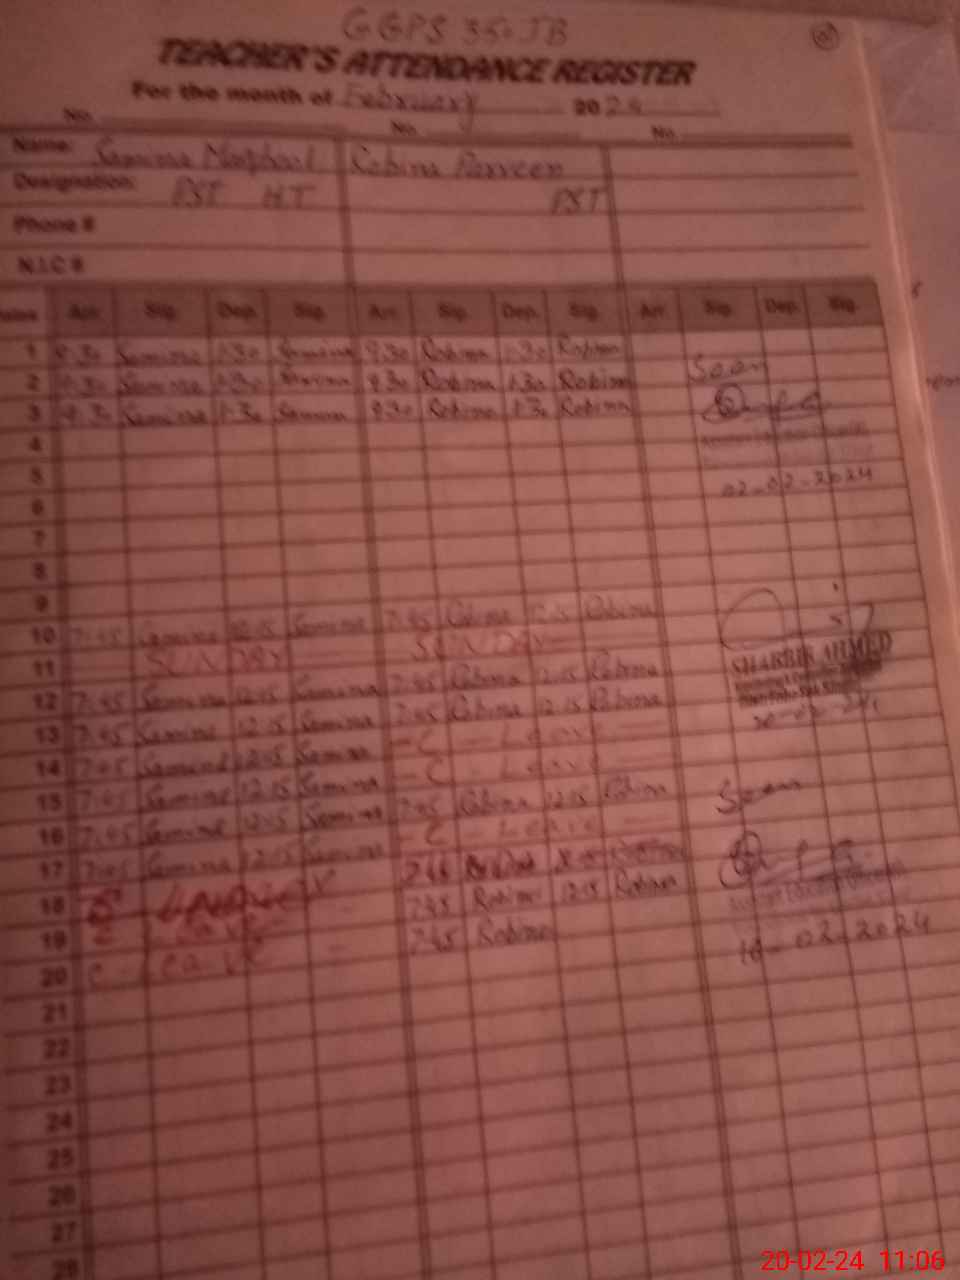 GGPS 35. JB
TEACHER'S ATTENDANCE REGISTER
For the month of February 2024
No. No. No.
Name: Samina Robina Parveen
Designation: PST HT PST
Phone #
N.I.C #
Arr. Sig. Dep. Sig. Arr. Sig. Dep. Sig. Arr. Sig. Dep. Sig.
1 Samina 1:30 Samina 9:30 Robina 1:30 Robina
2 Samina 1:30 Samina 9:30 Robina 1:30 Robina Seen
3 Samina 1:30 Samina 9:30 Robina 1:30 Robina
4
5 02-02-2024
6
7
8
9
10 7:45 Samina 12:15 Samina 7:45 Robina 12:15 Robina
11 SUNDAY SUNDAY SHABBIR AHMED
12 7:45 Samina 12:15 Samina 7:45 Robina 12:15 Robina
13 7:45 Samina 12:15 Samina 7:45 Robina 12:15 Robina
14 7:45 Samina 12:15 Samina - C - Leave -
15 7:45 Samina 12:15 Samina - C - Leave - Seen
16 7:45 Samina 12:15 Samina 7:45 Robina 12:15 Robina
17 7:45 Samina 12:15 Samina - C - Leave -
18
19 Leave 7:45 Robina 12:15 Robina 02-2024
20 C Leave - 7:45 Robina
21
22
23
24
25
26
27
28
20-02-24 11:06